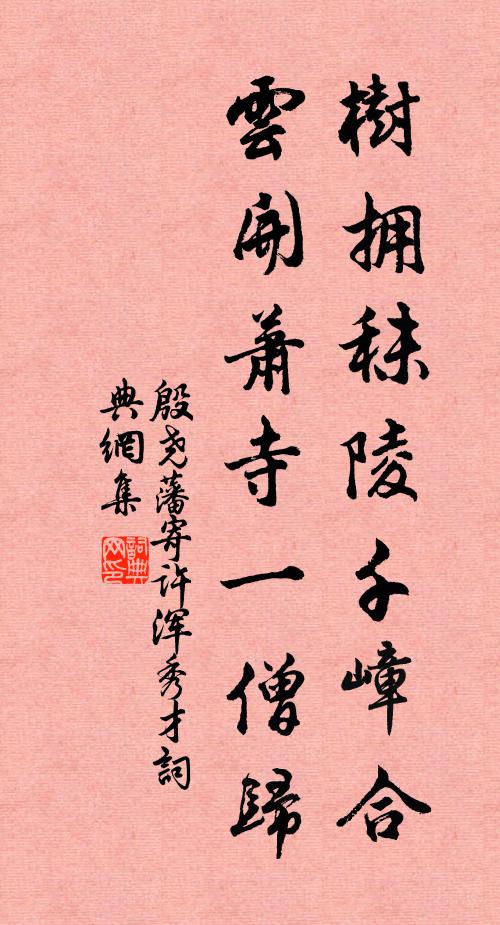 樹拥秣陵千嶂合
雲開蕭寺一僧歸
殷尧藩寄许浑秀才詞
典網集
詞典
网印